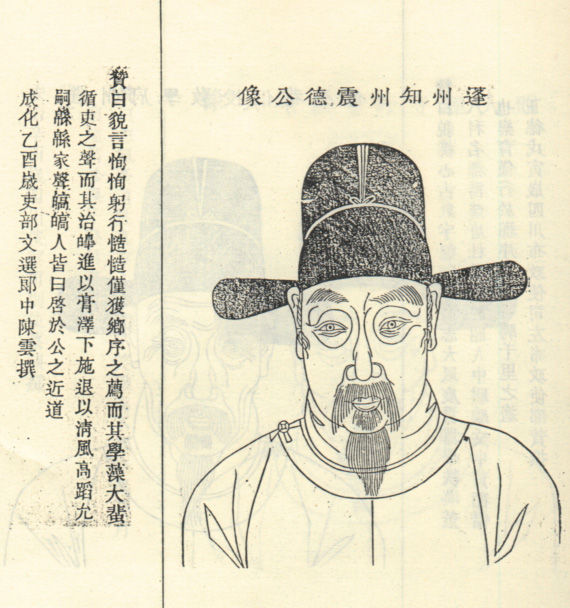 蓬州知州震德公像
贊曰貌言恂恂躬行慥慥僅獲鄉序之薦而其學藻大蜚
循吏之聲而其治皞進以膏澤下施退以清風高蹈允
嗣緜緜家聲皜皜人皆曰啓於公之近道
成化乙酉歲吏部文選郎中陳雲撰